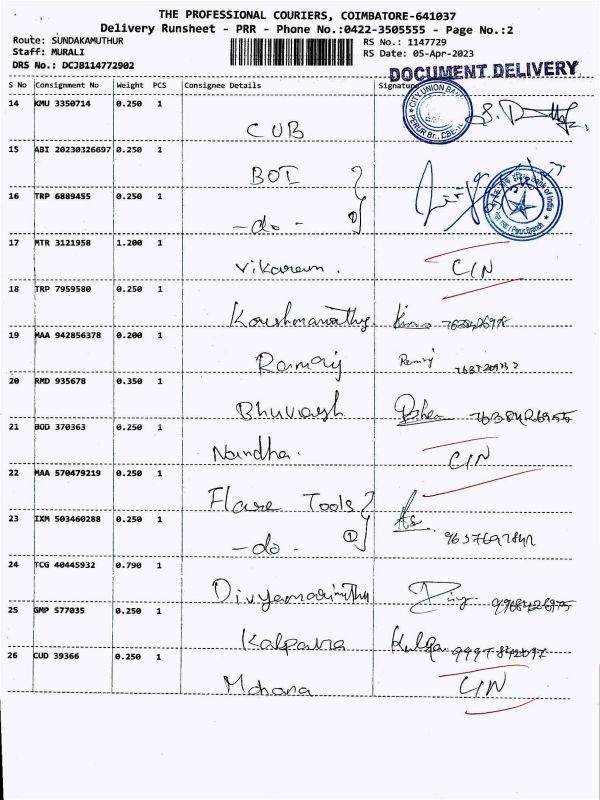 THE PROFESSIONAL COURIERS, COIMBATORE-641037
Delivery Runsheet - PRR - Phone No.:0422-3505555 - Page No.:2
Route: SUNDAKAMUTHUR
RS No.: 1147729
Staff: MURALI
RS Date: 05-Apr-2023
DRS No.: DCJB114772902
DOCUMENT DELIVERY
S No Consignment No Weight PCS Consignee Details Signature
14 KMU 3350714 0.250 1
CUB
15 ABI 20230326697 0.250 1
BOI
16 TRP 6889455 0.250 1
-do-
17 MTR 3121958 1.200 1
Vikaram. C/N
18 TRP 7959580 0.250 1
19 MAA 942856378 0.200 1
Ramaj
20 RMD 935678 0.350 1
21 BOD 370363 0.250 1
Nandha. C/N
22 MAA 570479219 0.250 1
Flare Tools
23 IXM 503460288 0.250 1
-do- ①
24 TCG 40445932 0.790 1
25 GMP 577035 0.250 1
Kalpana
26 CUD 39366 0.250 1
Mohana C/N